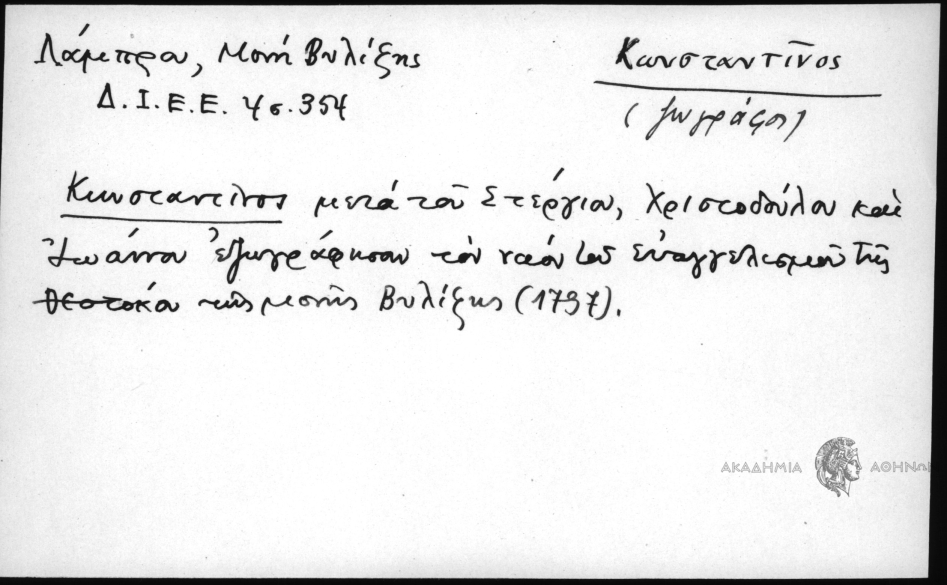 Λάμπρου, Μονή Βυλίζης
Κωνσταντῖνος
Δ.Ι.Ε.Ε. 4 σ. 354
(ζωγράφος)
Κωνσταντῖνος μετά τοῦ Στέργιου, Χριστοδούλου καὶ
Ἰωάννου ἐζωγράφησαν τὸν ναόν τοῦ Εὐαγγελισμοῦ τῆς
Θεοτόκου τῆς μονῆς Βυλίζης (1797).
ΑΚΑΔΗΜΙΑ ΑΘΗΝΩΝ